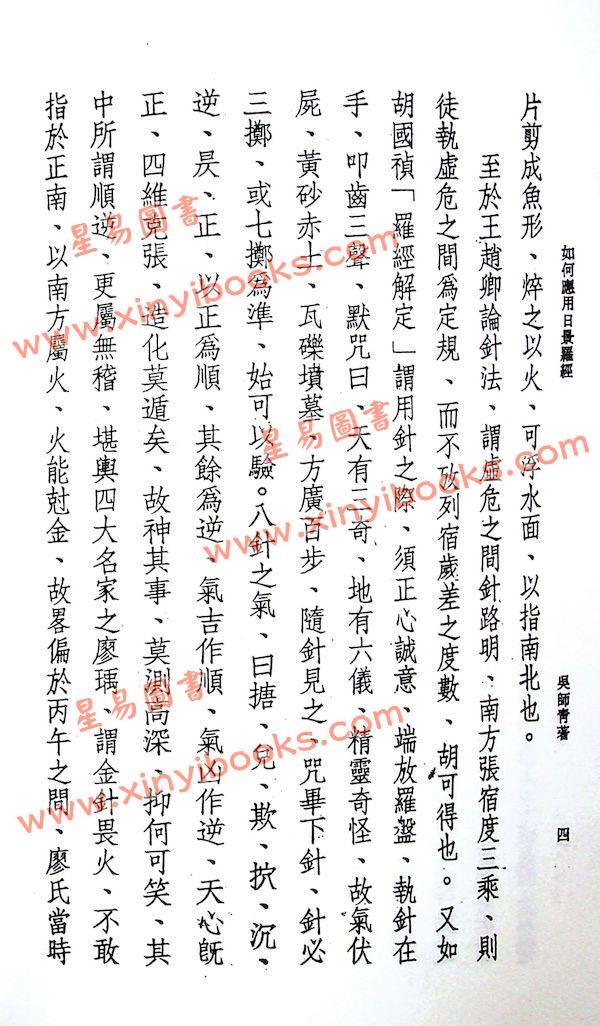 如何應用日景羅經
吳師青著
四
片剪成魚形、焠之以火、可浮水面、以指南北也。
至於王趙卿論針法、謂虛危之間針路明、南方張宿度三乘、則
徒執虛危之間爲定規、而不攷列宿歲差之度數、胡可得也。又如
胡國禎「羅經解定」謂用針之際、須正心誠意、端放羅盤、執針在
手、叩齒三聲、默咒曰、天有三奇、地有六儀、精靈奇怪、故氣伏
屍、黃砂赤土、瓦礫墳墓、方廣百步、隨針見之、咒畢下針、針必
三擲、或七擲為準、始可以驗。八針之氣、曰搪、兌、欺、㧒、沉、
逆、昃、正、以正爲順、其餘爲逆、氣吉作順、氣凶作逆、天心旣
正、四維克張、造化莫遁矣、故神其事、莫測高深、抑何可笑、其
中所謂順逆、更屬無稽、堪輿四大名家之廖瑀、謂金針畏火、不敢
指於正南、以南方屬火、火能尅金、故畧偏於丙午之間、廖氏當時
星易圖書
www.xinyibooks.com
星易圖書
www.xinyibooks.com
星易圖書
www.xinyibooks.com